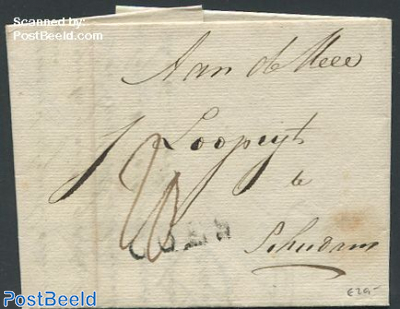 Scanned by
PostBeeld.com
Aan de Heer
J Loopuyt
te
Schiedam
€20,-
PostBeeld